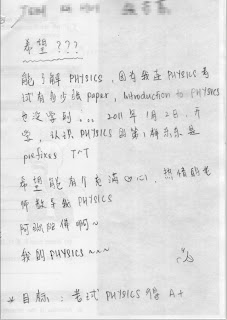 希望 ???
能了解 PHYSICS , 因为我连 PHYSICS 考
试有多少张 paper , Introduction to PHYSICS
也没学到 ... 2011 年 1月 2日 , 开
学 , 认识 PHYSICS 的第1样东东是
prefixes T^T
希望能有个充满 , 热情的老
师教导我 PHYSICS
阿弥陀佛啊~
我的 PHYSICS ~~~
* 目标 : 考试 PHYSICS 得 A+